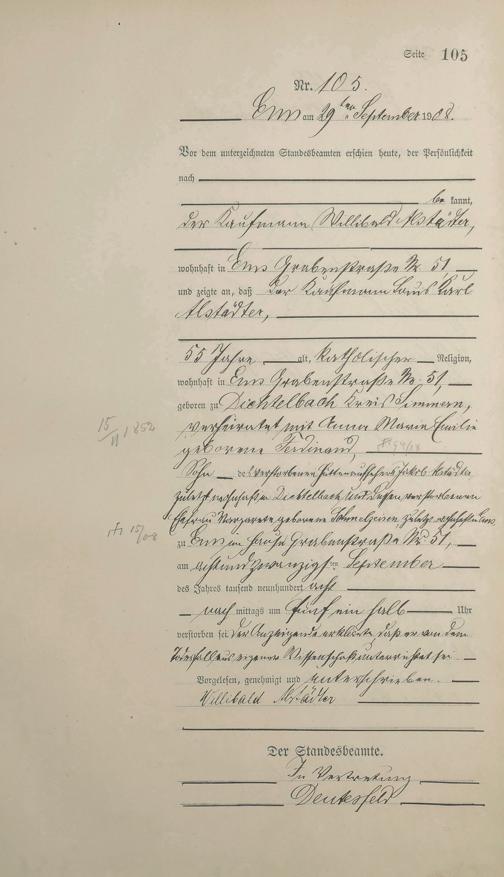 Seite 105
Nr. 105.
Ems am 29ten September 1908.
Vor dem unterzeichneten Standesbeamten erschien heute, der Persönlichkeit
nach
be kannt,
der Kaufmann Willibald Alstädter,
wohnhaft in Ems Grabenstraße Nr. 51,
und zeigte an, daß der Kaufmann Louis Karl
Alstädter,
55 Jahre alt, katholischer Religion,
wohnhaft in Ems Grabenstraße Nr. 51,
geboren zu Dichtelbach Kreis Simmern,
verheiratet mit Anna Maria Emilie
15/11 1852
geborene Ferdinand,
Sohn des verstorbenen Hüttenaufsehers Jakob Alstädter
zuletzt wohnhaft in Dichtelbach und dessen verstorbenen
Ehefrau Margarete geborene zuletzt wohnhaft in Ems
zu Ems im Hause Grabenstraße Nr. 51,
am achtundzwanzigsten September
des Jahres tausend neunhundert acht
nach mittags um fünf ein halb Uhr
verstorben sei. Der Anzeigende erklärte, daß er von dem
Todesfall aus eigener Wissenschaft unterrichtet sei.
Vorgelesen, genehmigt und unterschrieben.
Willibald Alstädter
Der Standesbeamte.
In Vertretung